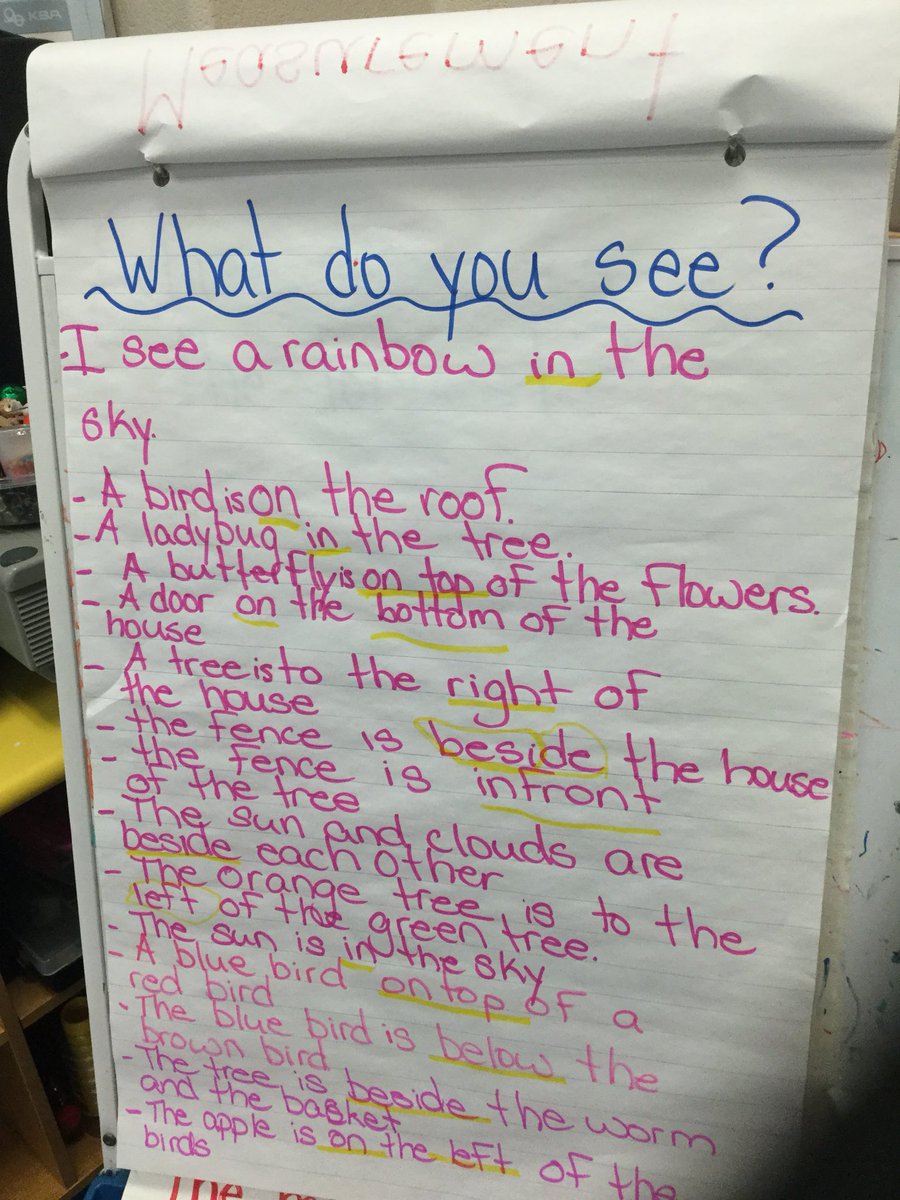 KBA
Measurement
What do you see?
-I see a rainbow in the
sky.
- A bird is on the roof.
- A ladybug in the tree.
- A butterfly is on top of the flowers.
- A door on the bottom of the
house
- A tree is to the right of
the house
- the fence is beside the house
- the fence is infront
of the tree
- The sun and clouds are
beside each other
- The orange tree is to the
left of the green tree.
- The sun is in the sky
- A blue bird on top of a
red bird
- The blue bird is below the
brown bird
- The tree is beside the worm
and the basket
- The apple is on the left of the
birds
The